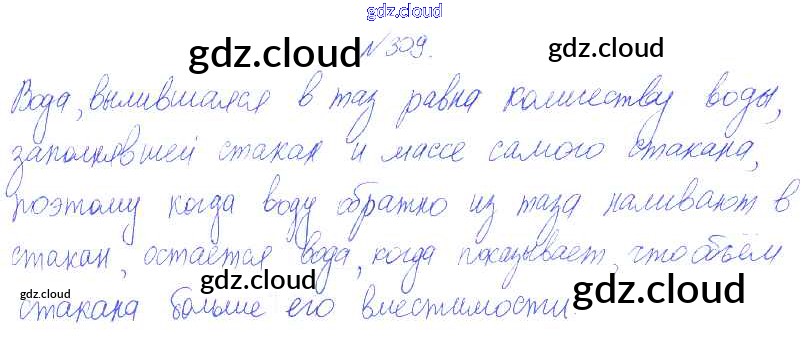 gdz.cloud
gdz.cloud № 309. gdz.cloud
Вода, вылившаяся в таз равна количеству воды,
заполнявшей стакан и массе самого стакана,
поэтому когда воду обратно из таза наливают в
стакан, остаётся вода, когда показывает, что объём
gdz.cloud gdz.cloud gdz.cloud
стакана больше его вместимости.